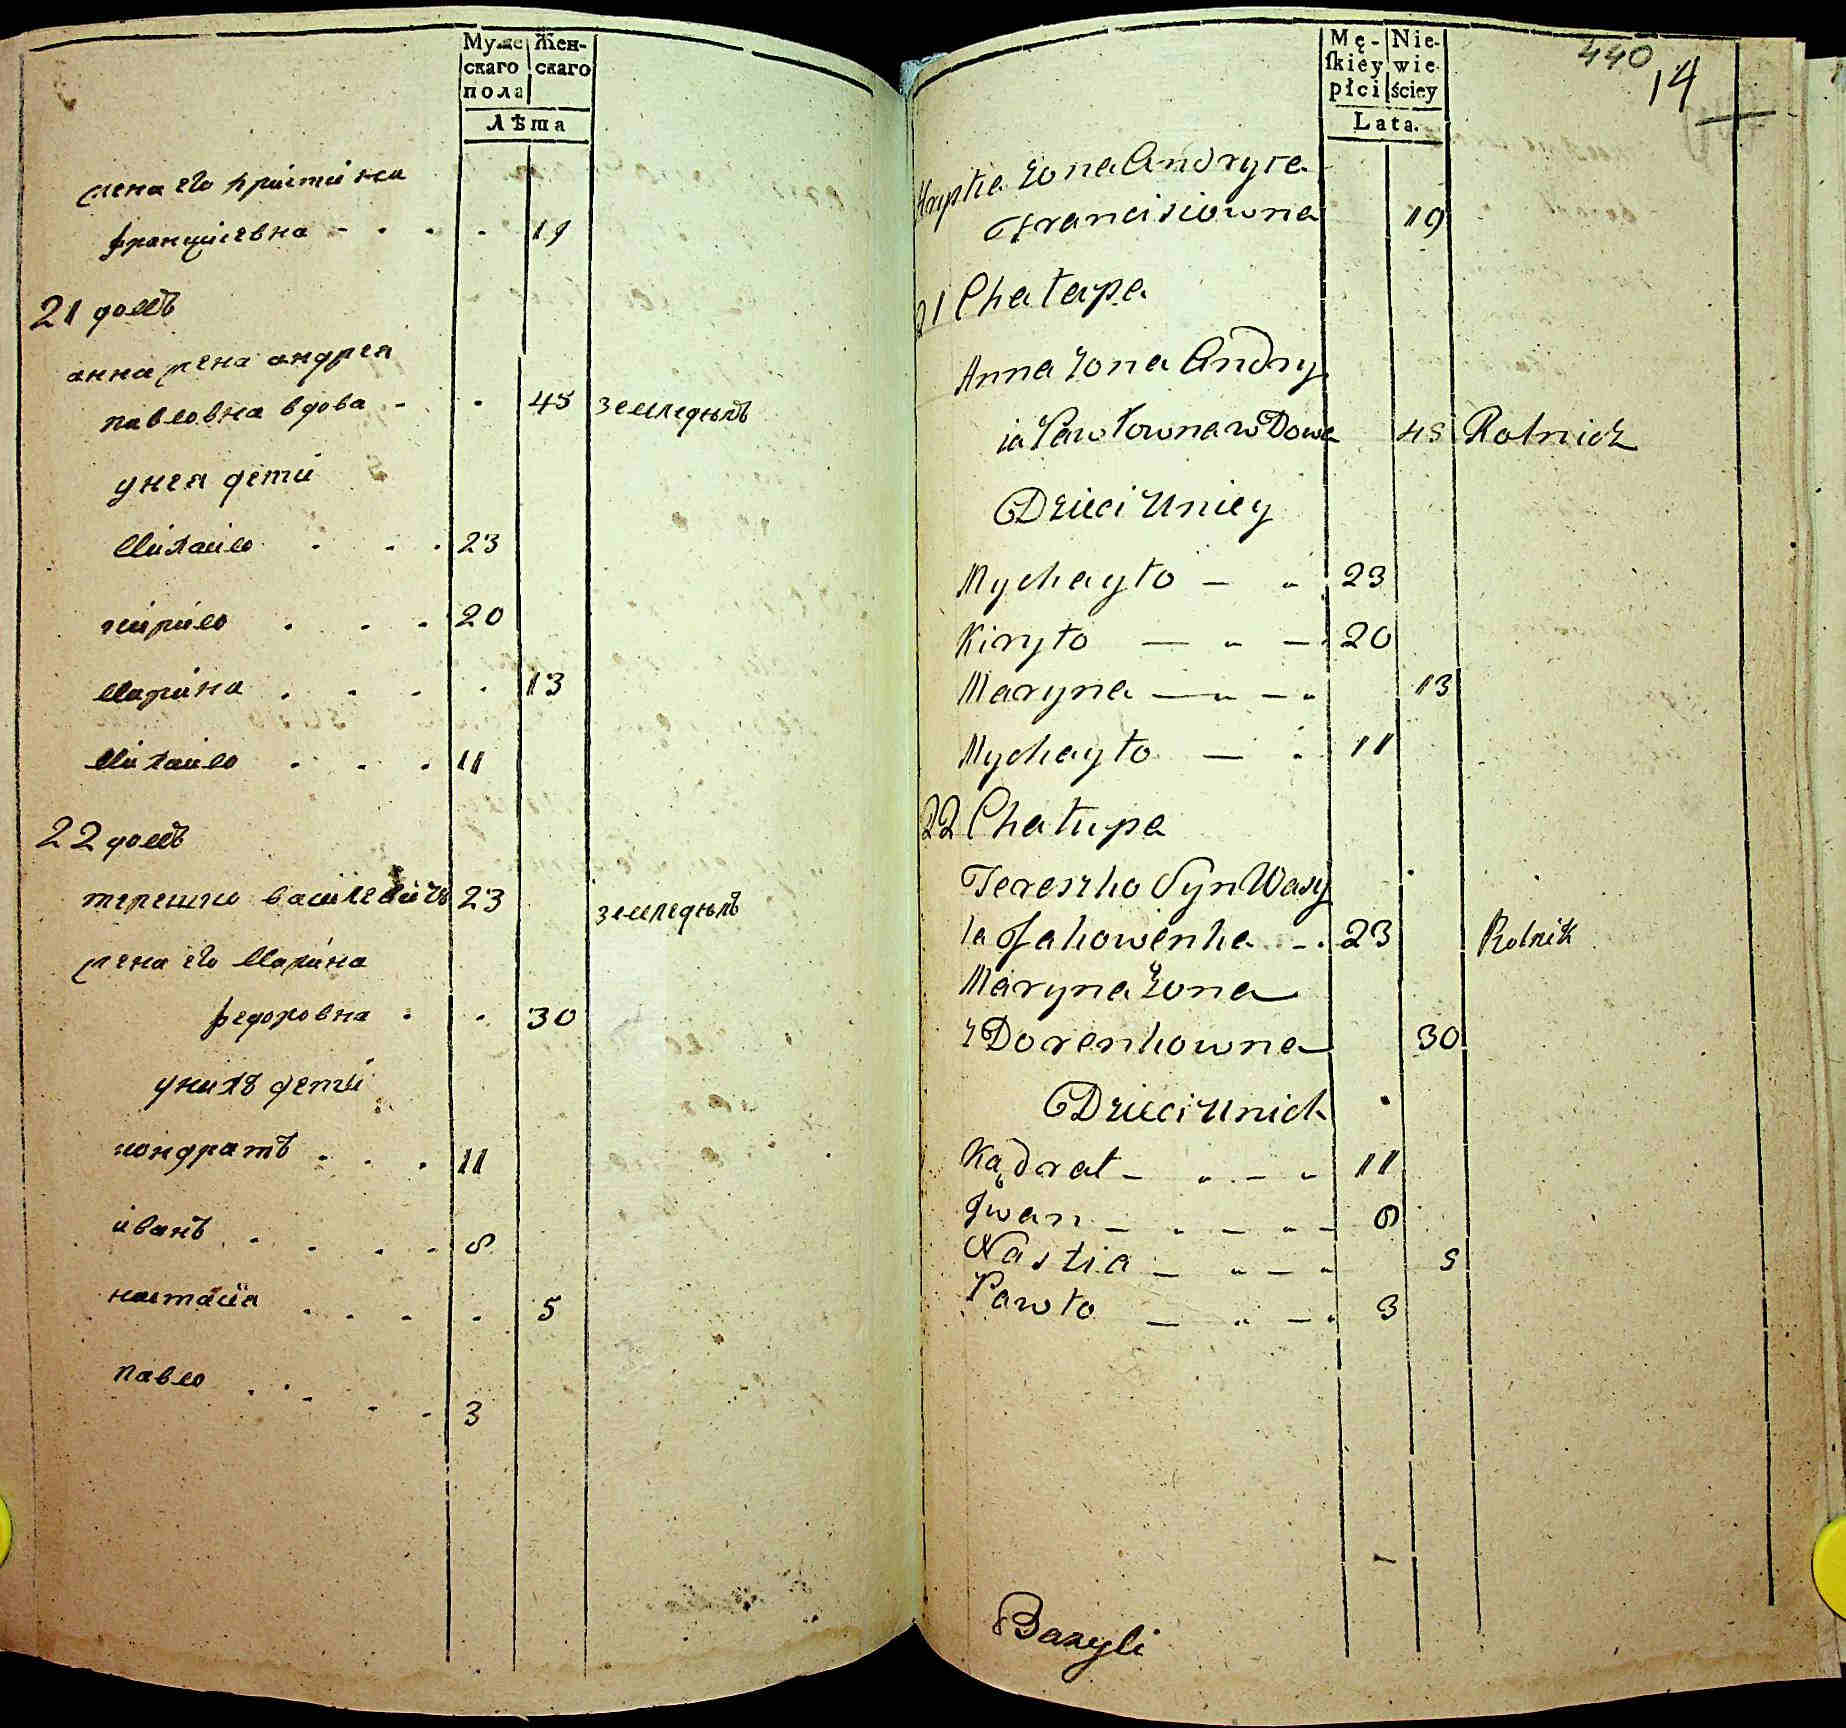 Муже Жен-
скаго скаго
пола
Лѣта
жена его христина
францишевна - . . . 19
21 домъ
анна жена андрея
павловна вдова - . 45 земледѣлъ
у нея дети
Михаило . . . 23
кирило . . . 20
Марина . . . . 13
Михаило . . . 11
22 домъ
терешко василевичъ 23 земледѣлъ
жена его Марина
федоровна . . 30
у нихъ дети
кондратъ . . . 11
иванъ . . . . 8
настасия . . . . 5
павло . . . . 3
Mę- Nie-
skiey wie-
płci ściey
Lata.
440
14
Żona Andryia
Franciskowna 19
21 Chałupa
Anna Żona Andry
ia Pawłowna wDowa 45 Rolnicz
Dzieci Uniey
Mychayło 23
Kiryło 20
Maryna 13
Mychayło 11
22 Chałupa
Tereszko Syn Wasy
la Jakowenka 23 Rolnik
Maryna Żona
z Dorenkowna 30
Dzieci Unich
Kądrat 11
Jwan 8
Nastia 5
Pawło 3
Bazyli